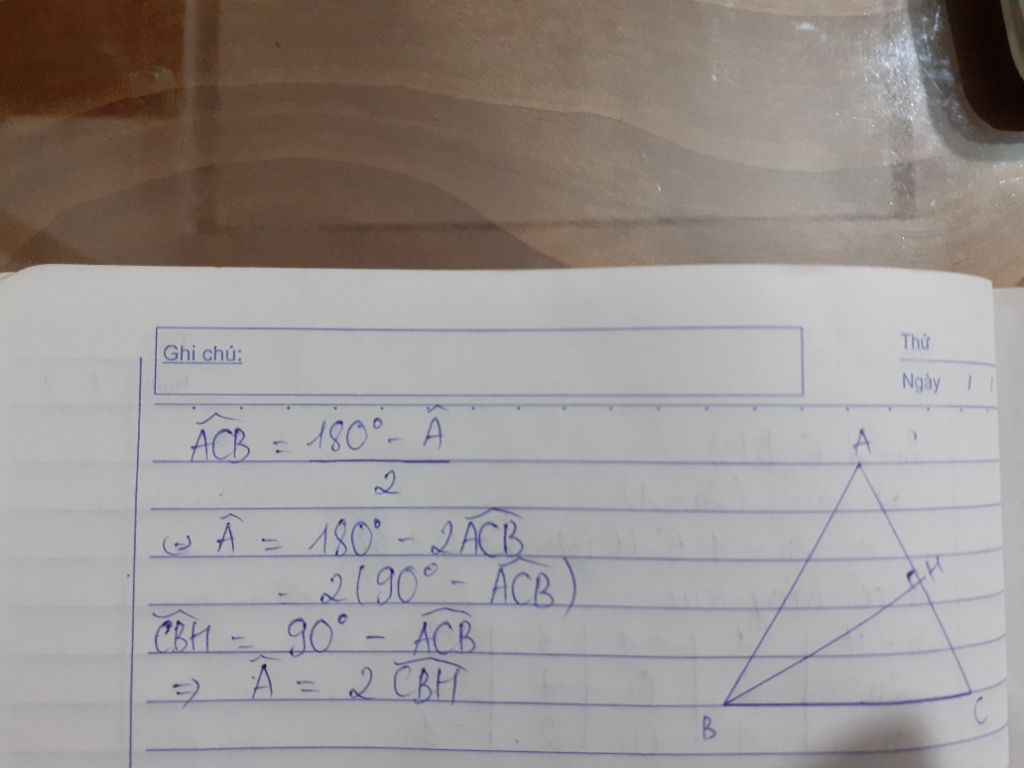 Ghi chú:
Thứ
Ngày / /
ACB = 180° - Â
2
<=> Â = 180° - 2ACB
= 2(90° - ACB)
CBH = 90° - ACB
=> Â = 2 CBH
A
H
B
C